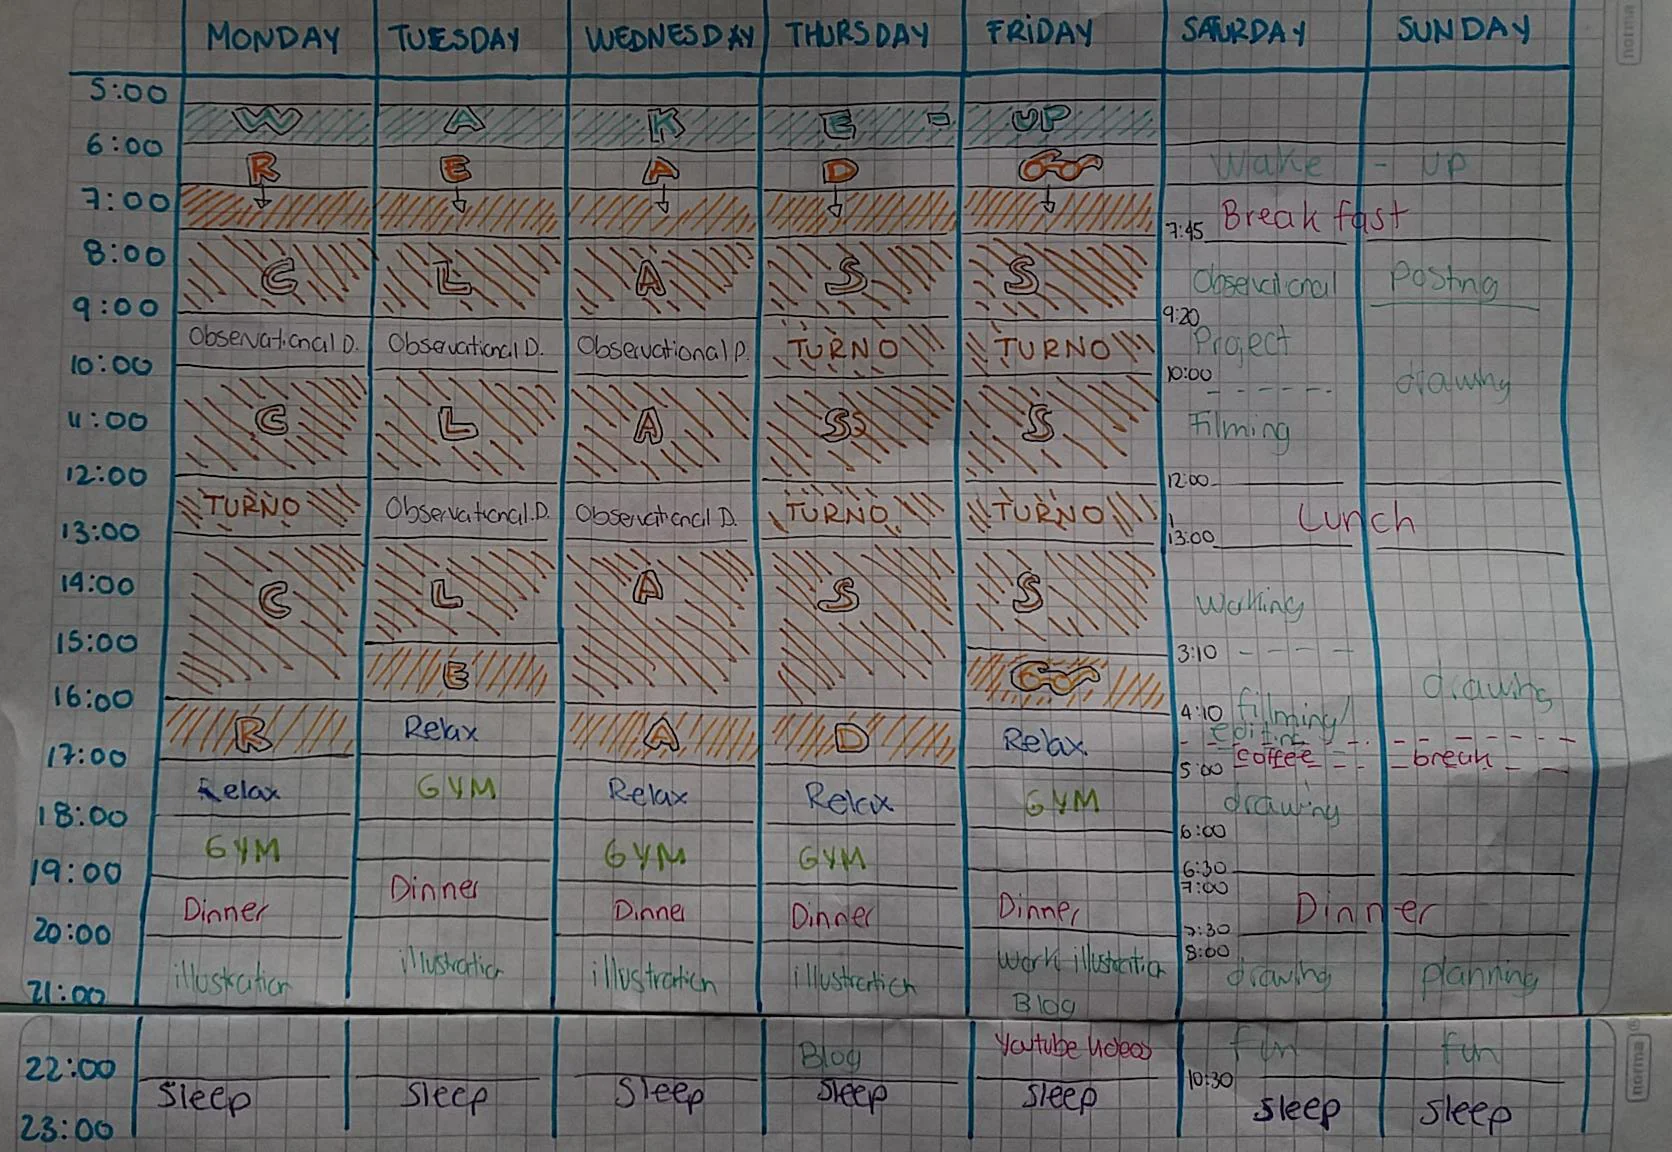 MONDAY TUESDAY WEDNESDAY THURSDAY FRIDAY SATURDAY SUNDAY
5:00
W A K E - UP
6:00
R E A D Wake - up
7:00
7:45 Breakfast
8:00 C L A S S Observational Posting
9:00 9:20
Observational D. Observational D. Observational D. TURNO TURNO Project
10:00 10:00 drawing
11:00 C L A S S Filming
12:00 12:00
TURNO Observational D. Observational D. TURNO TURNO Lunch
13:00 13:00
14:00 C L A S S Working
15:00 3:10
E drawing
16:00 4:10 filming/
R Relax A D Relax editing
17:00 5:00 coffee break
Relax GYM Relax Relax GYM drawing
18:00 6:00
GYM GYM GYM
19:00 6:30
7:00
Dinner Dinner Dinner Dinner Dinner Dinner
20:00 7:30
8:00
illustration illustration illustration illustration work illustration drawing planning
21:00 Blog
22:00 Blog Youtube videos fun fun
10:30
Sleep Sleep Sleep Sleep Sleep Sleep Sleep
23:00
norma
norma